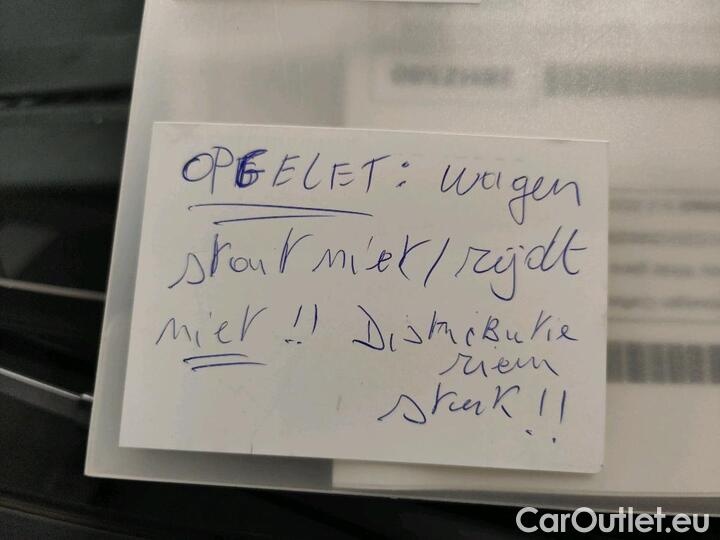 OPGELET: wagen
start niet/rijdt
niet!! Distributie
riem
stuk!!
CarOutlet.eu